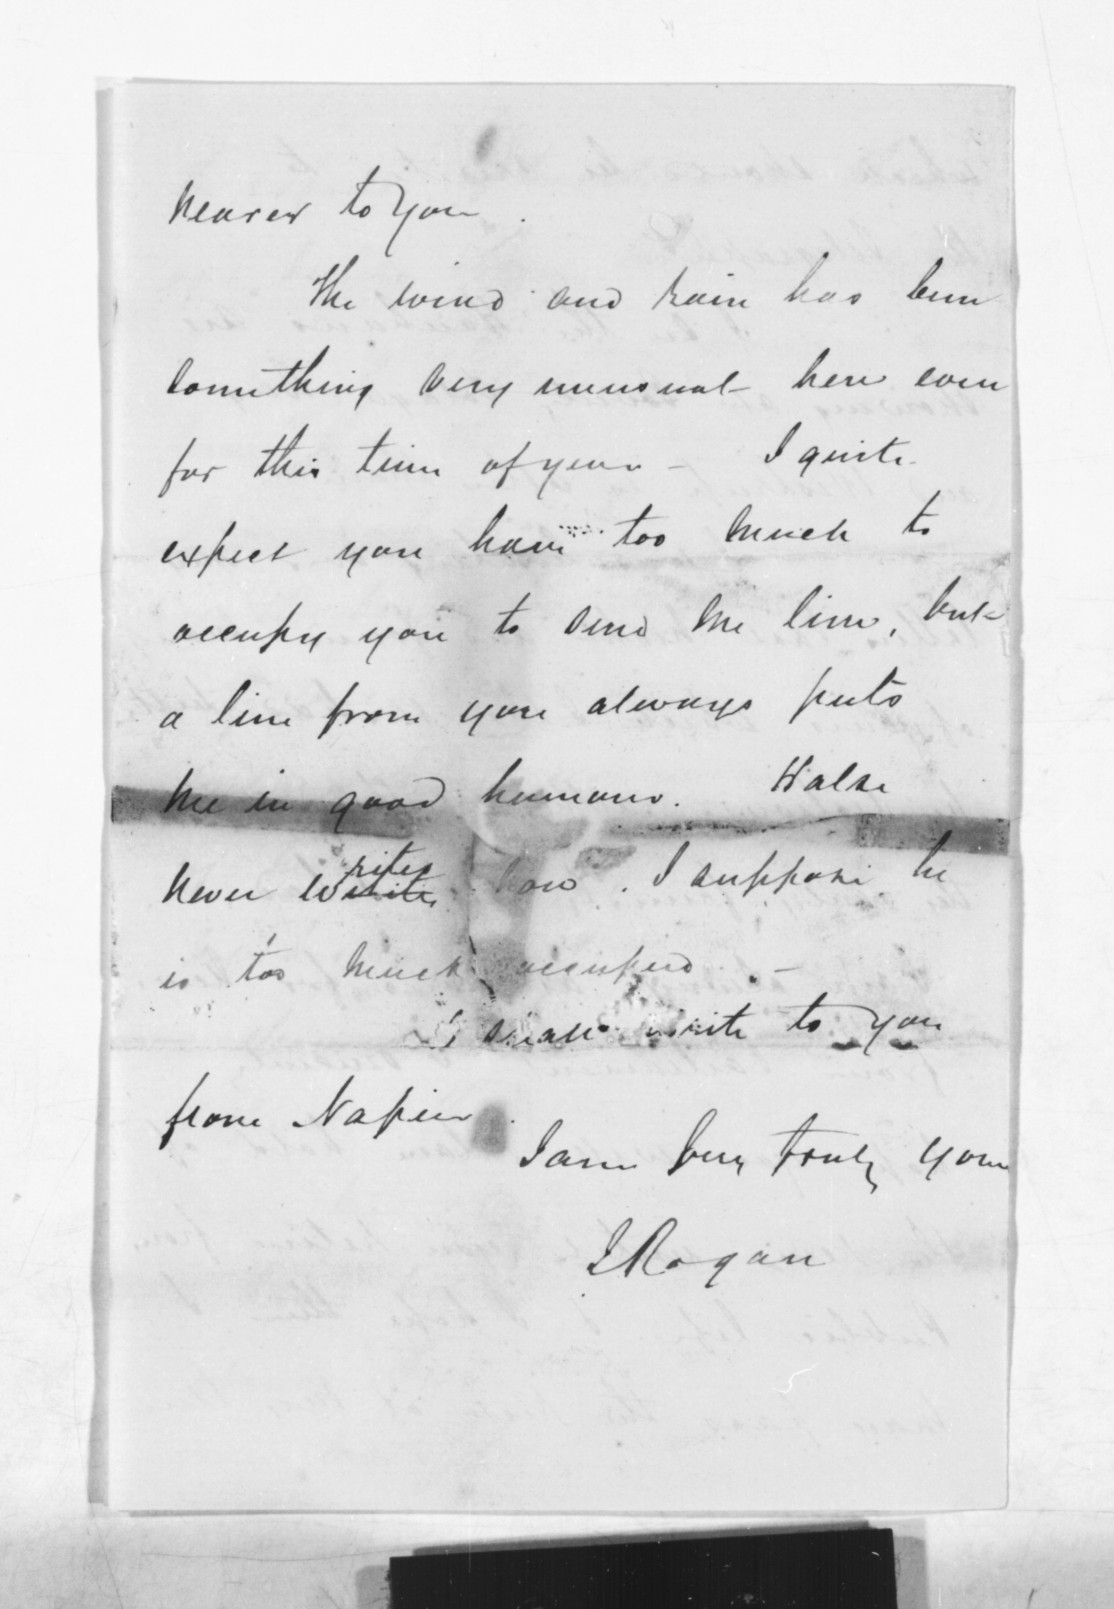 nearer to you.
The wind and rain has been
something very unusual here even
for this time of year – I quite
expect you have too much to
occupy you to send me line, but
a line from you always puts
me in good humour. Halse
never writes now. I suppose he
is too much occupied. –
I shall write to you
from Napier.
I am very truly yours
J Rogan